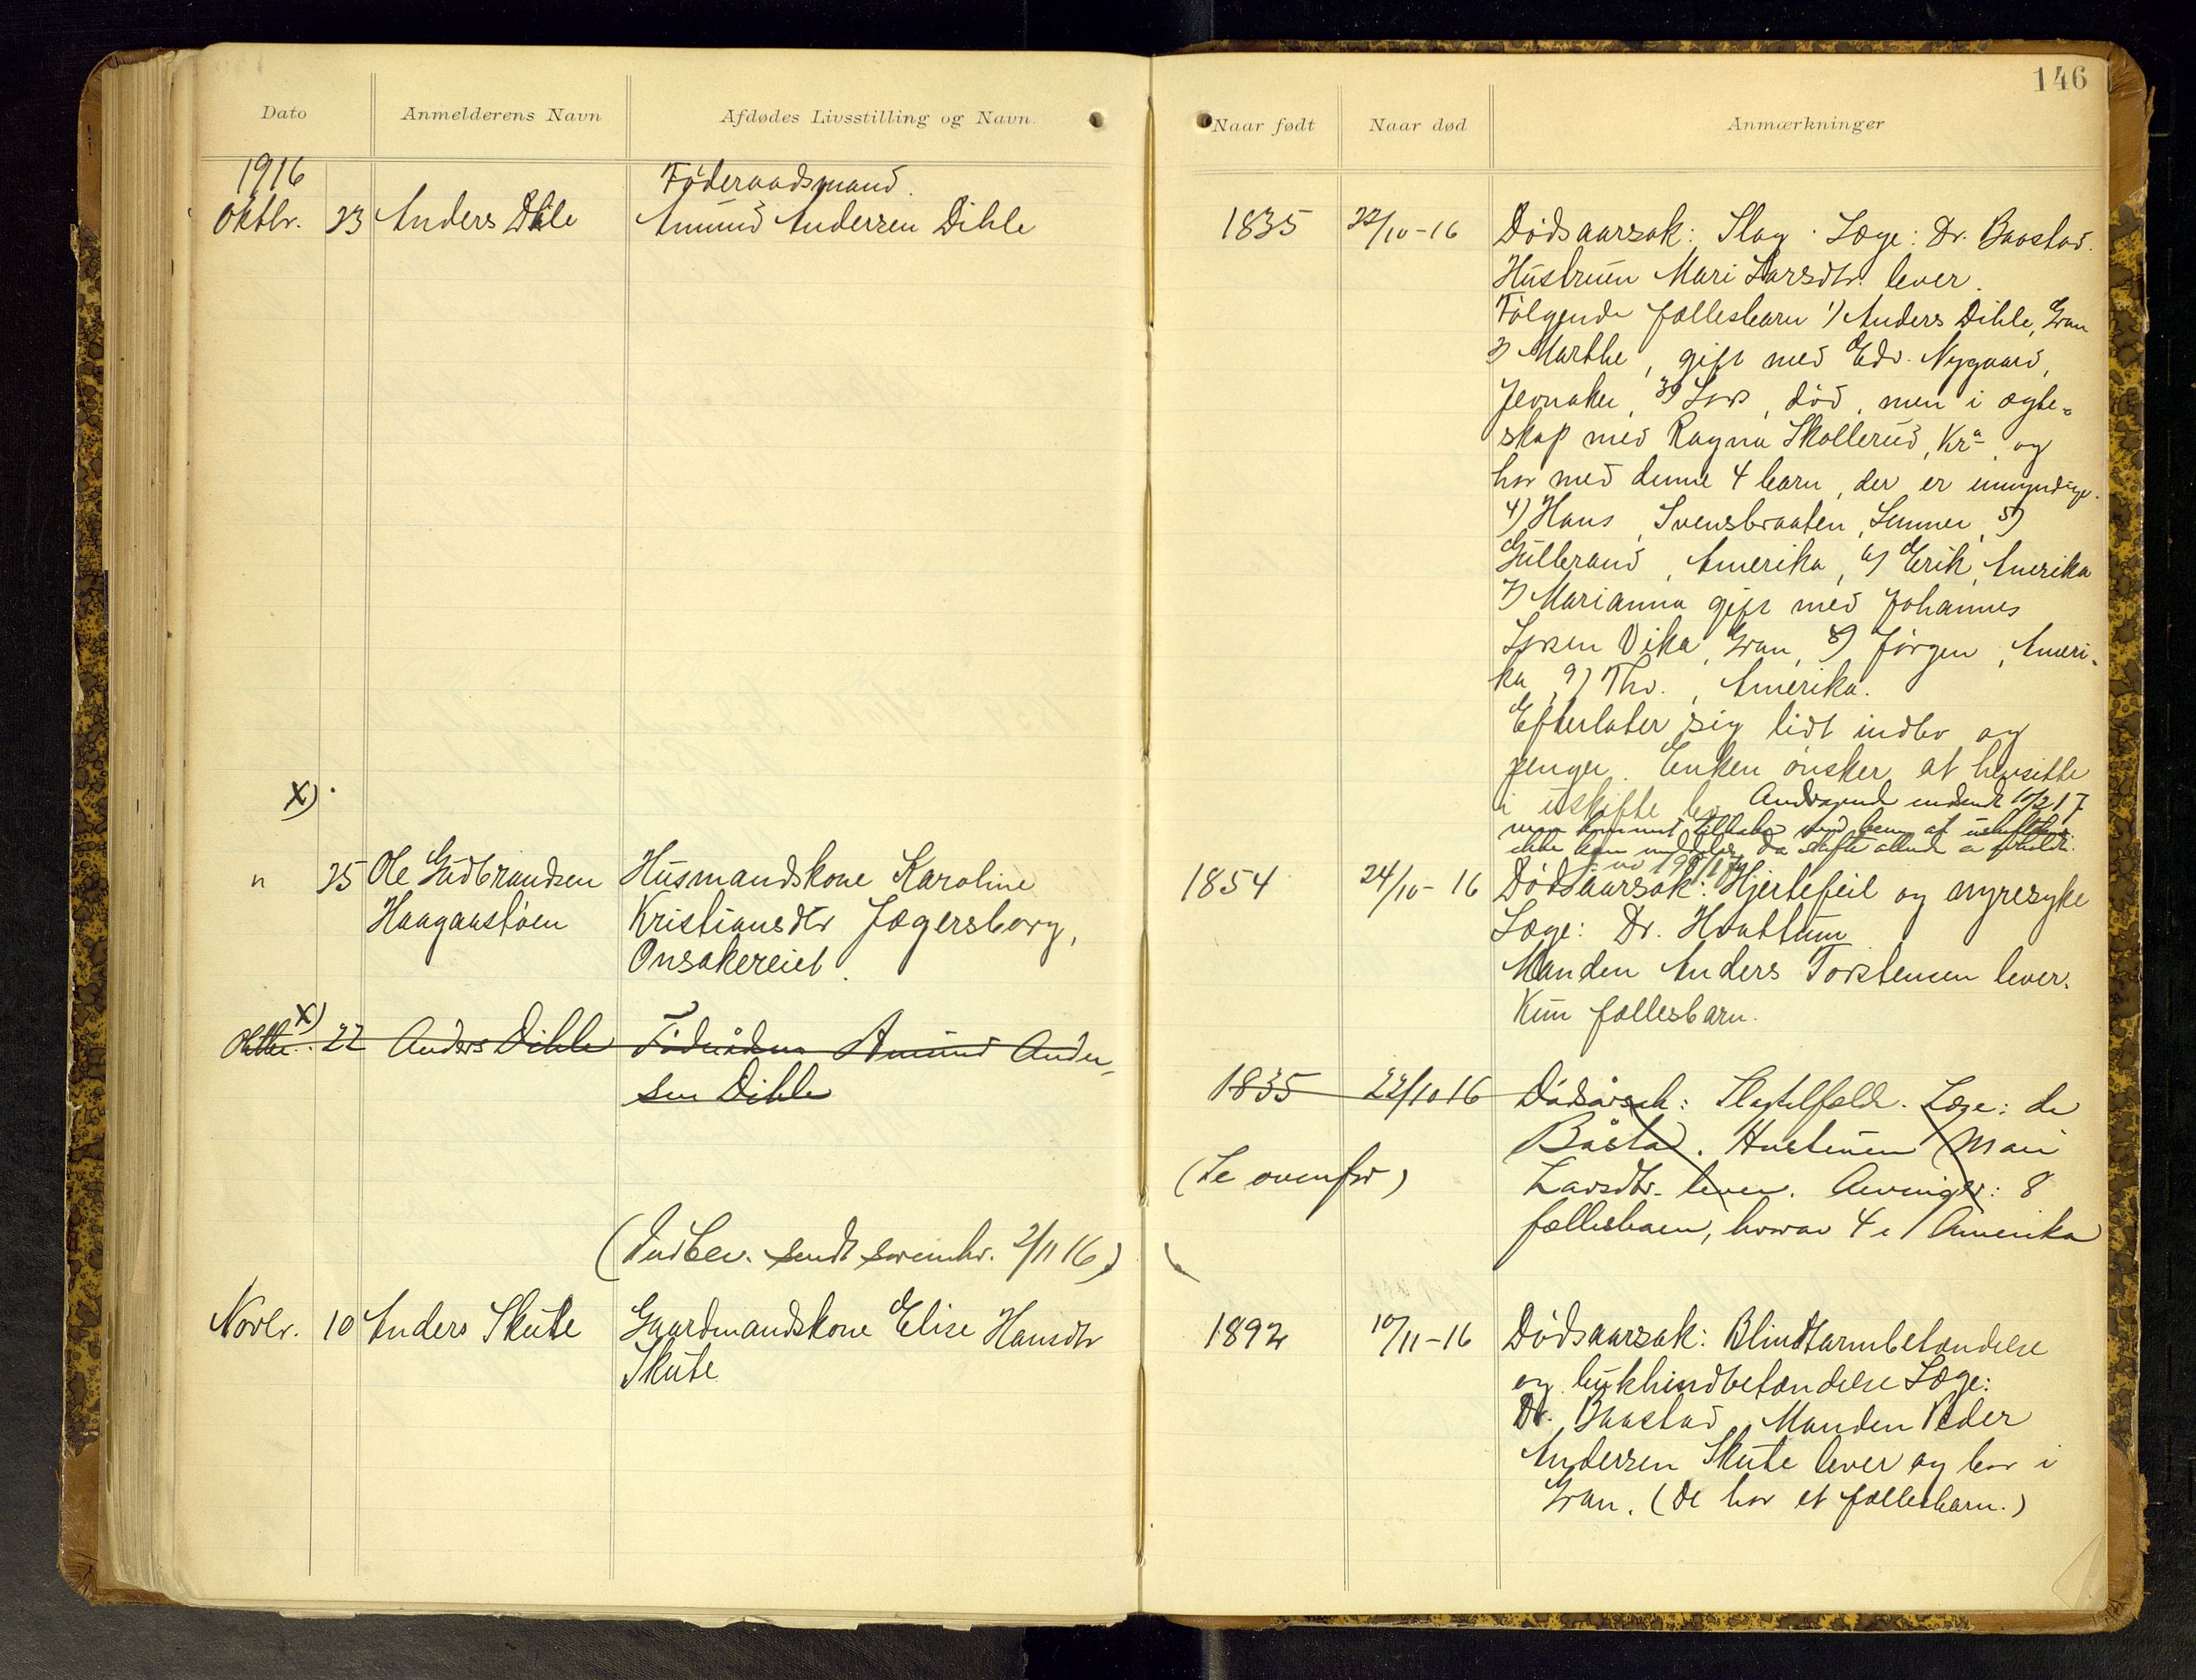 146
Dato Anmelderens Navn Afdødes Livsstilling og Navn. Naar født Naar død Anmærkninger
1916 Føderaadsmand.
Oktbr. 23 Anders Dihle Amund Andersen Dihle 1835 22/10-16 Dødsaarsak: Slag. Læge: Dr. Baastad.
Hustruen Mari Larsdtr. lever.
Følgende fællesbarn 1) Anders Dihle, Gran
2) Marthe, gift med Edv. Nygaard,
Jevnaker, 3) Lars, død, men i ægte-
skap med Ragna Skollerud, Kra, og
har med denne 4 barn, der er umyndige.
4) Hans, Svensbraaten, Lunner, 5)
Gulbrand, Amerika, 6) Erik, Amerika
7) Marianna gift med Johannes
Larsen Vika, Gran, 8) Jørgen, Ameri-
ka, 9) Thv., Amerika.
Efterlater sig lidt indbo og
penger. Enken ønsker at hensitte
X) i uskifte bo Andragende indsendt 10/2 17
" 25 Ole Gudbrandsen Husmandskone Karoline 1854 24/10-16 Dødsaarsak: Hjertefeil og nyresyke
Haagaastøen Kristiansdtr Jægersborg, Læge: Dr. Hvattum
Onsakereiet. Manden Anders Torstensen lever.
Kun fællesbarn.
X)
Oktbr. 22 Anders Dihle Føderådsm Amund Ander-
sen Dihle 1835 22/10 16 Dødsårsak: Slagtilfælde. Læge: dr
Båstad. Hustruen Mari
(Se ovenfor) Larsdtr. lever. Arvinger: 8
fællesbarn, hvorav 4 i Amerika
(Indber. sendt sorenskr. 2/11 16)
Novbr. 10 Anders Skute Gaardmandskone Elise Hansdtr 1892 10/11-16 Dødsaarsak: Blindtarmbetændelse
Skute og bukhindbetændelse Læge:
Dr. Baastad. Manden Peder
Andersen Skute lever og bor i
Gran. (De har et fællesbarn.)